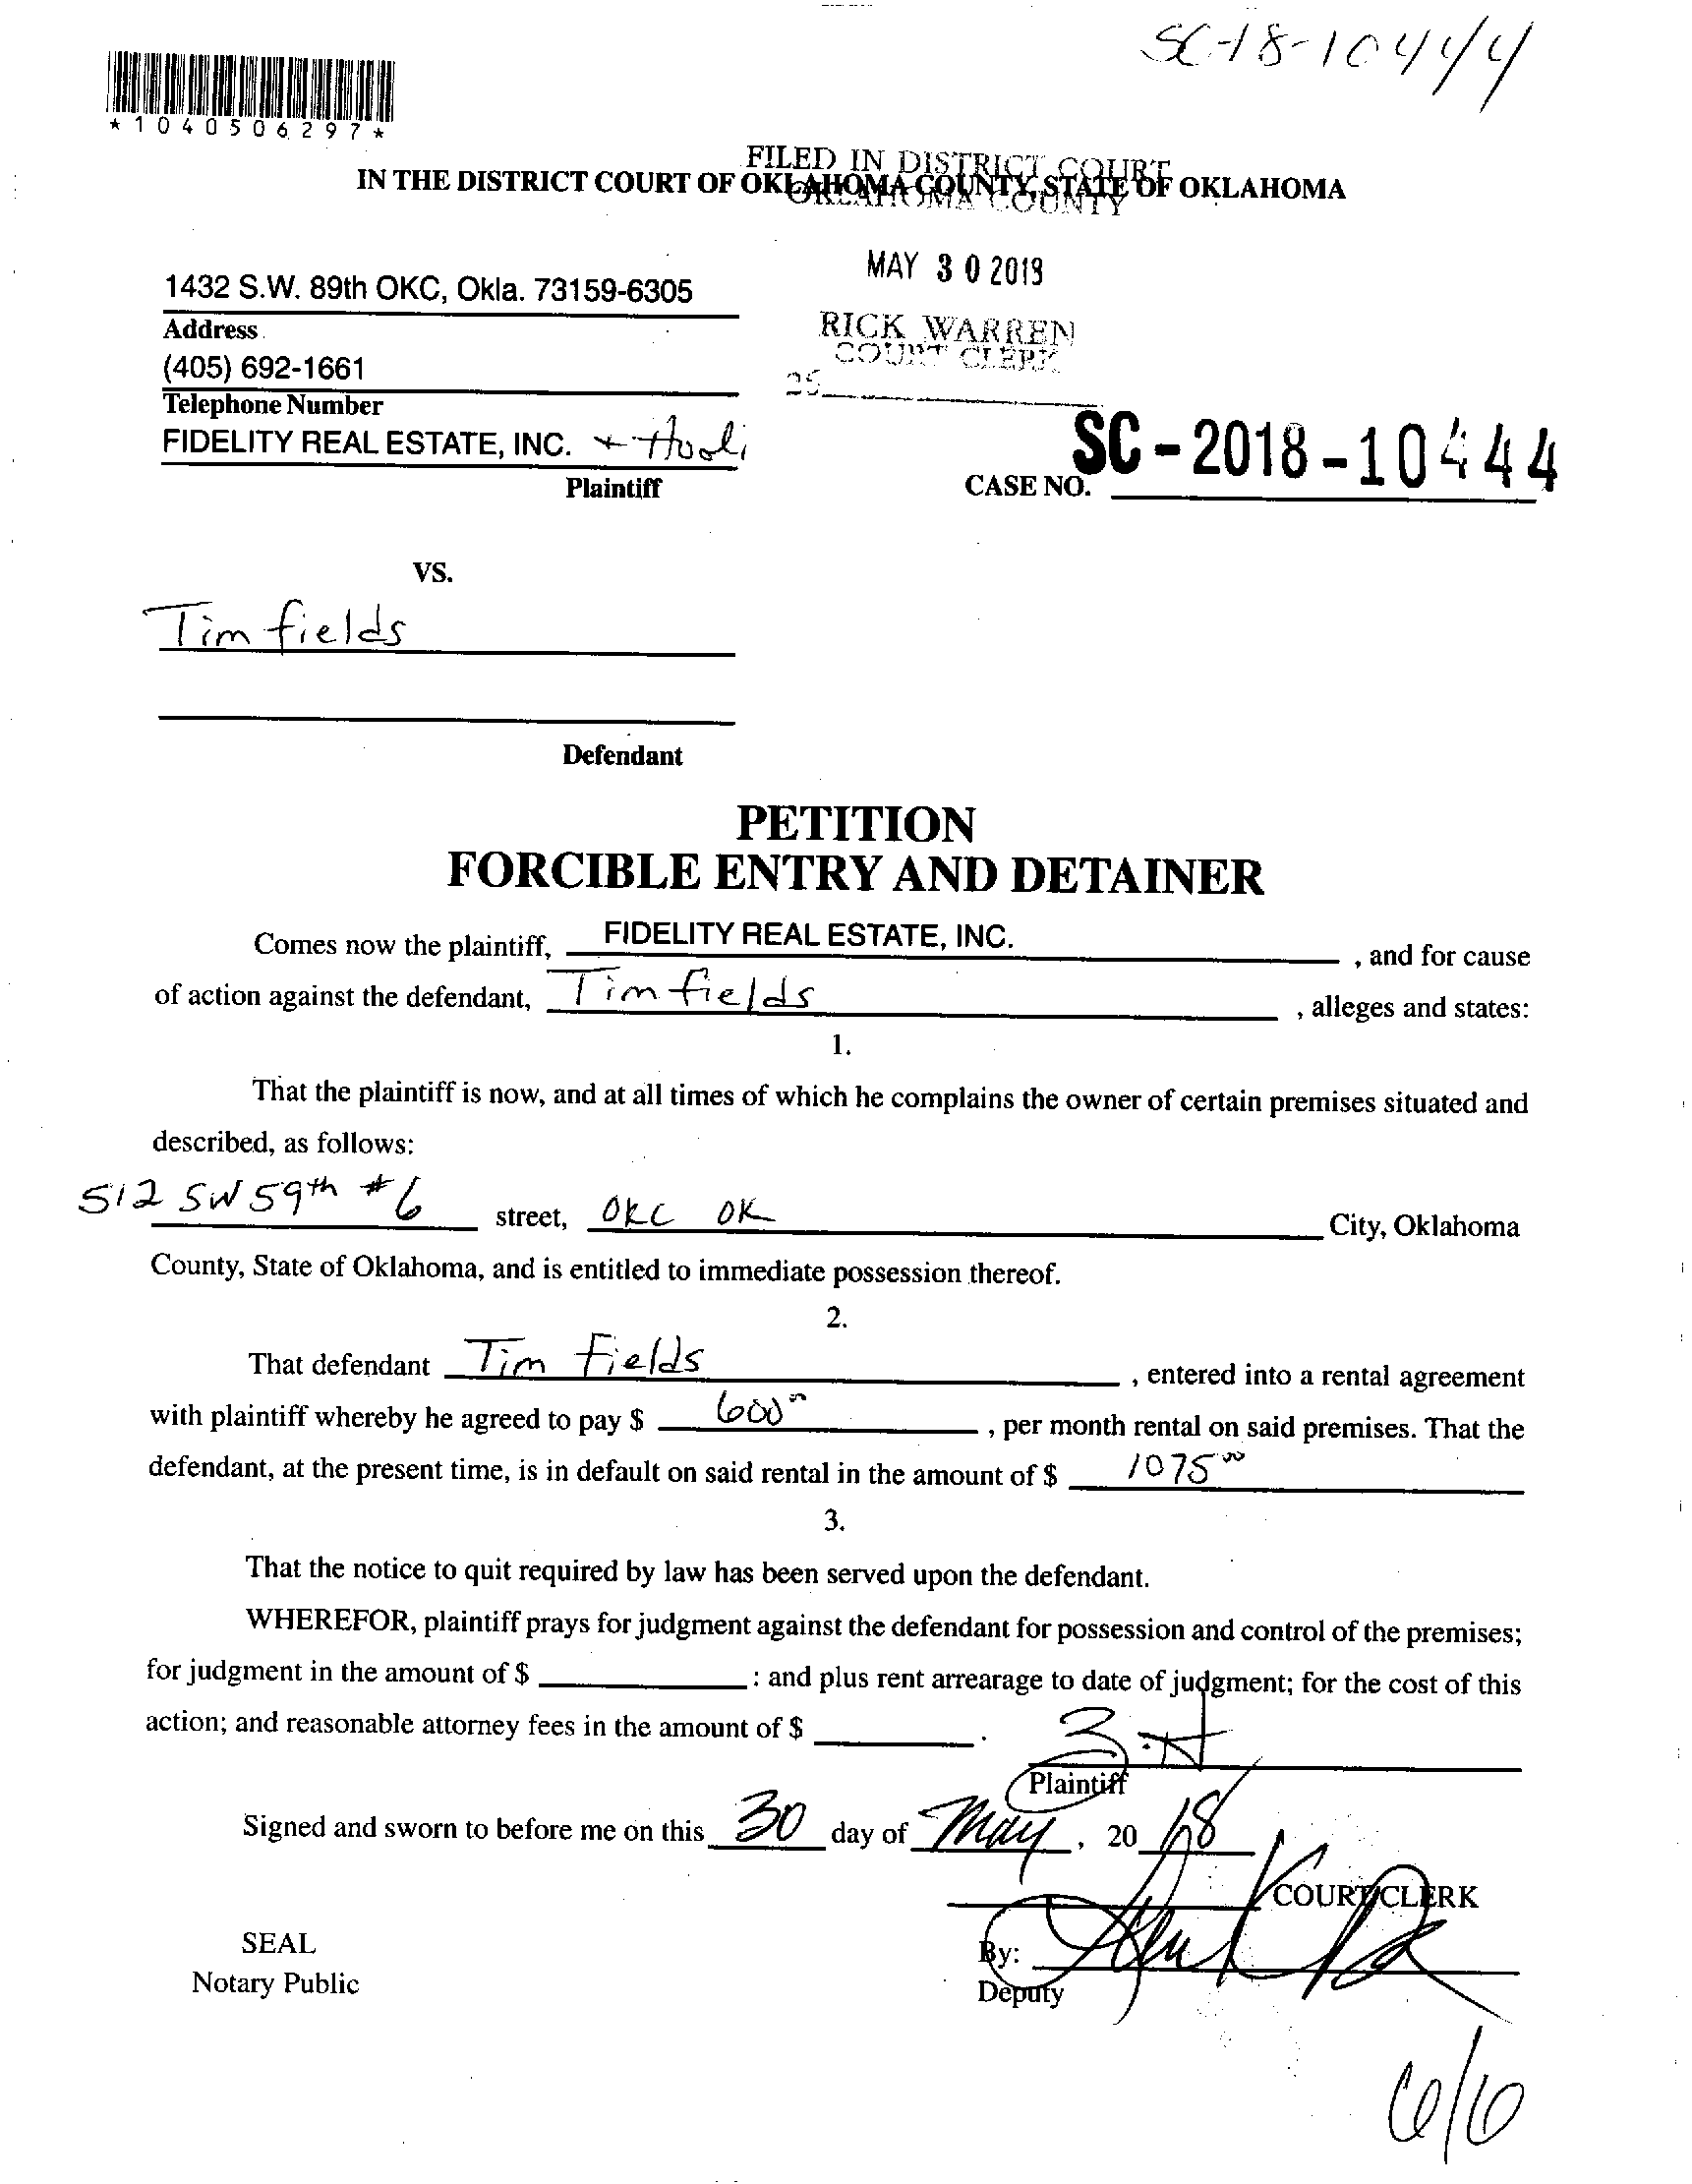 SC-18-10444
*1040506297*
FILED IN DISTRICT COURT
OKLAHOMA COUNTY
IN THE DISTRICT COURT OF OKLAHOMA COUNTY, STATE OF OKLAHOMA
MAY 30 2018
1432 S.W. 89th OKC, Okla. 73159-6305
Address
RICK WARREN
COURT CLERK
(405) 692-1661
Telephone Number
FIDELITY REAL ESTATE, INC. +
Plaintiff
SC-2018-10444
CASE NO.
VS.
Tim fields
Defendant
PETITION
FORCIBLE ENTRY AND DETAINER
Comes now the plaintiff, FIDELITY REAL ESTATE, INC. , and for cause
of action against the defendant, Tim fields , alleges and states:
1.
That the plaintiff is now, and at all times of which he complains the owner of certain premises situated and
described, as follows:
512 SW 59th #6 street, OKC OK City, Oklahoma
County, State of Oklahoma, and is entitled to immediate possession thereof.
2.
That defendant Tim Fields , entered into a rental agreement
with plaintiff whereby he agreed to pay $ 600 , per month rental on said premises. That the
defendant, at the present time, is in default on said rental in the amount of $ 1075 00
3.
That the notice to quit required by law has been served upon the defendant.
WHEREFOR, plaintiff prays for judgment against the defendant for possession and control of the premises;
for judgment in the amount of $ : and plus rent arrearage to date of judgment; for the cost of this
action; and reasonable attorney fees in the amount of $ .
Plaintiff
Signed and sworn to before me on this 30 day of May , 20 18
COURT CLERK
SEAL
By:
Notary Public
Deputy